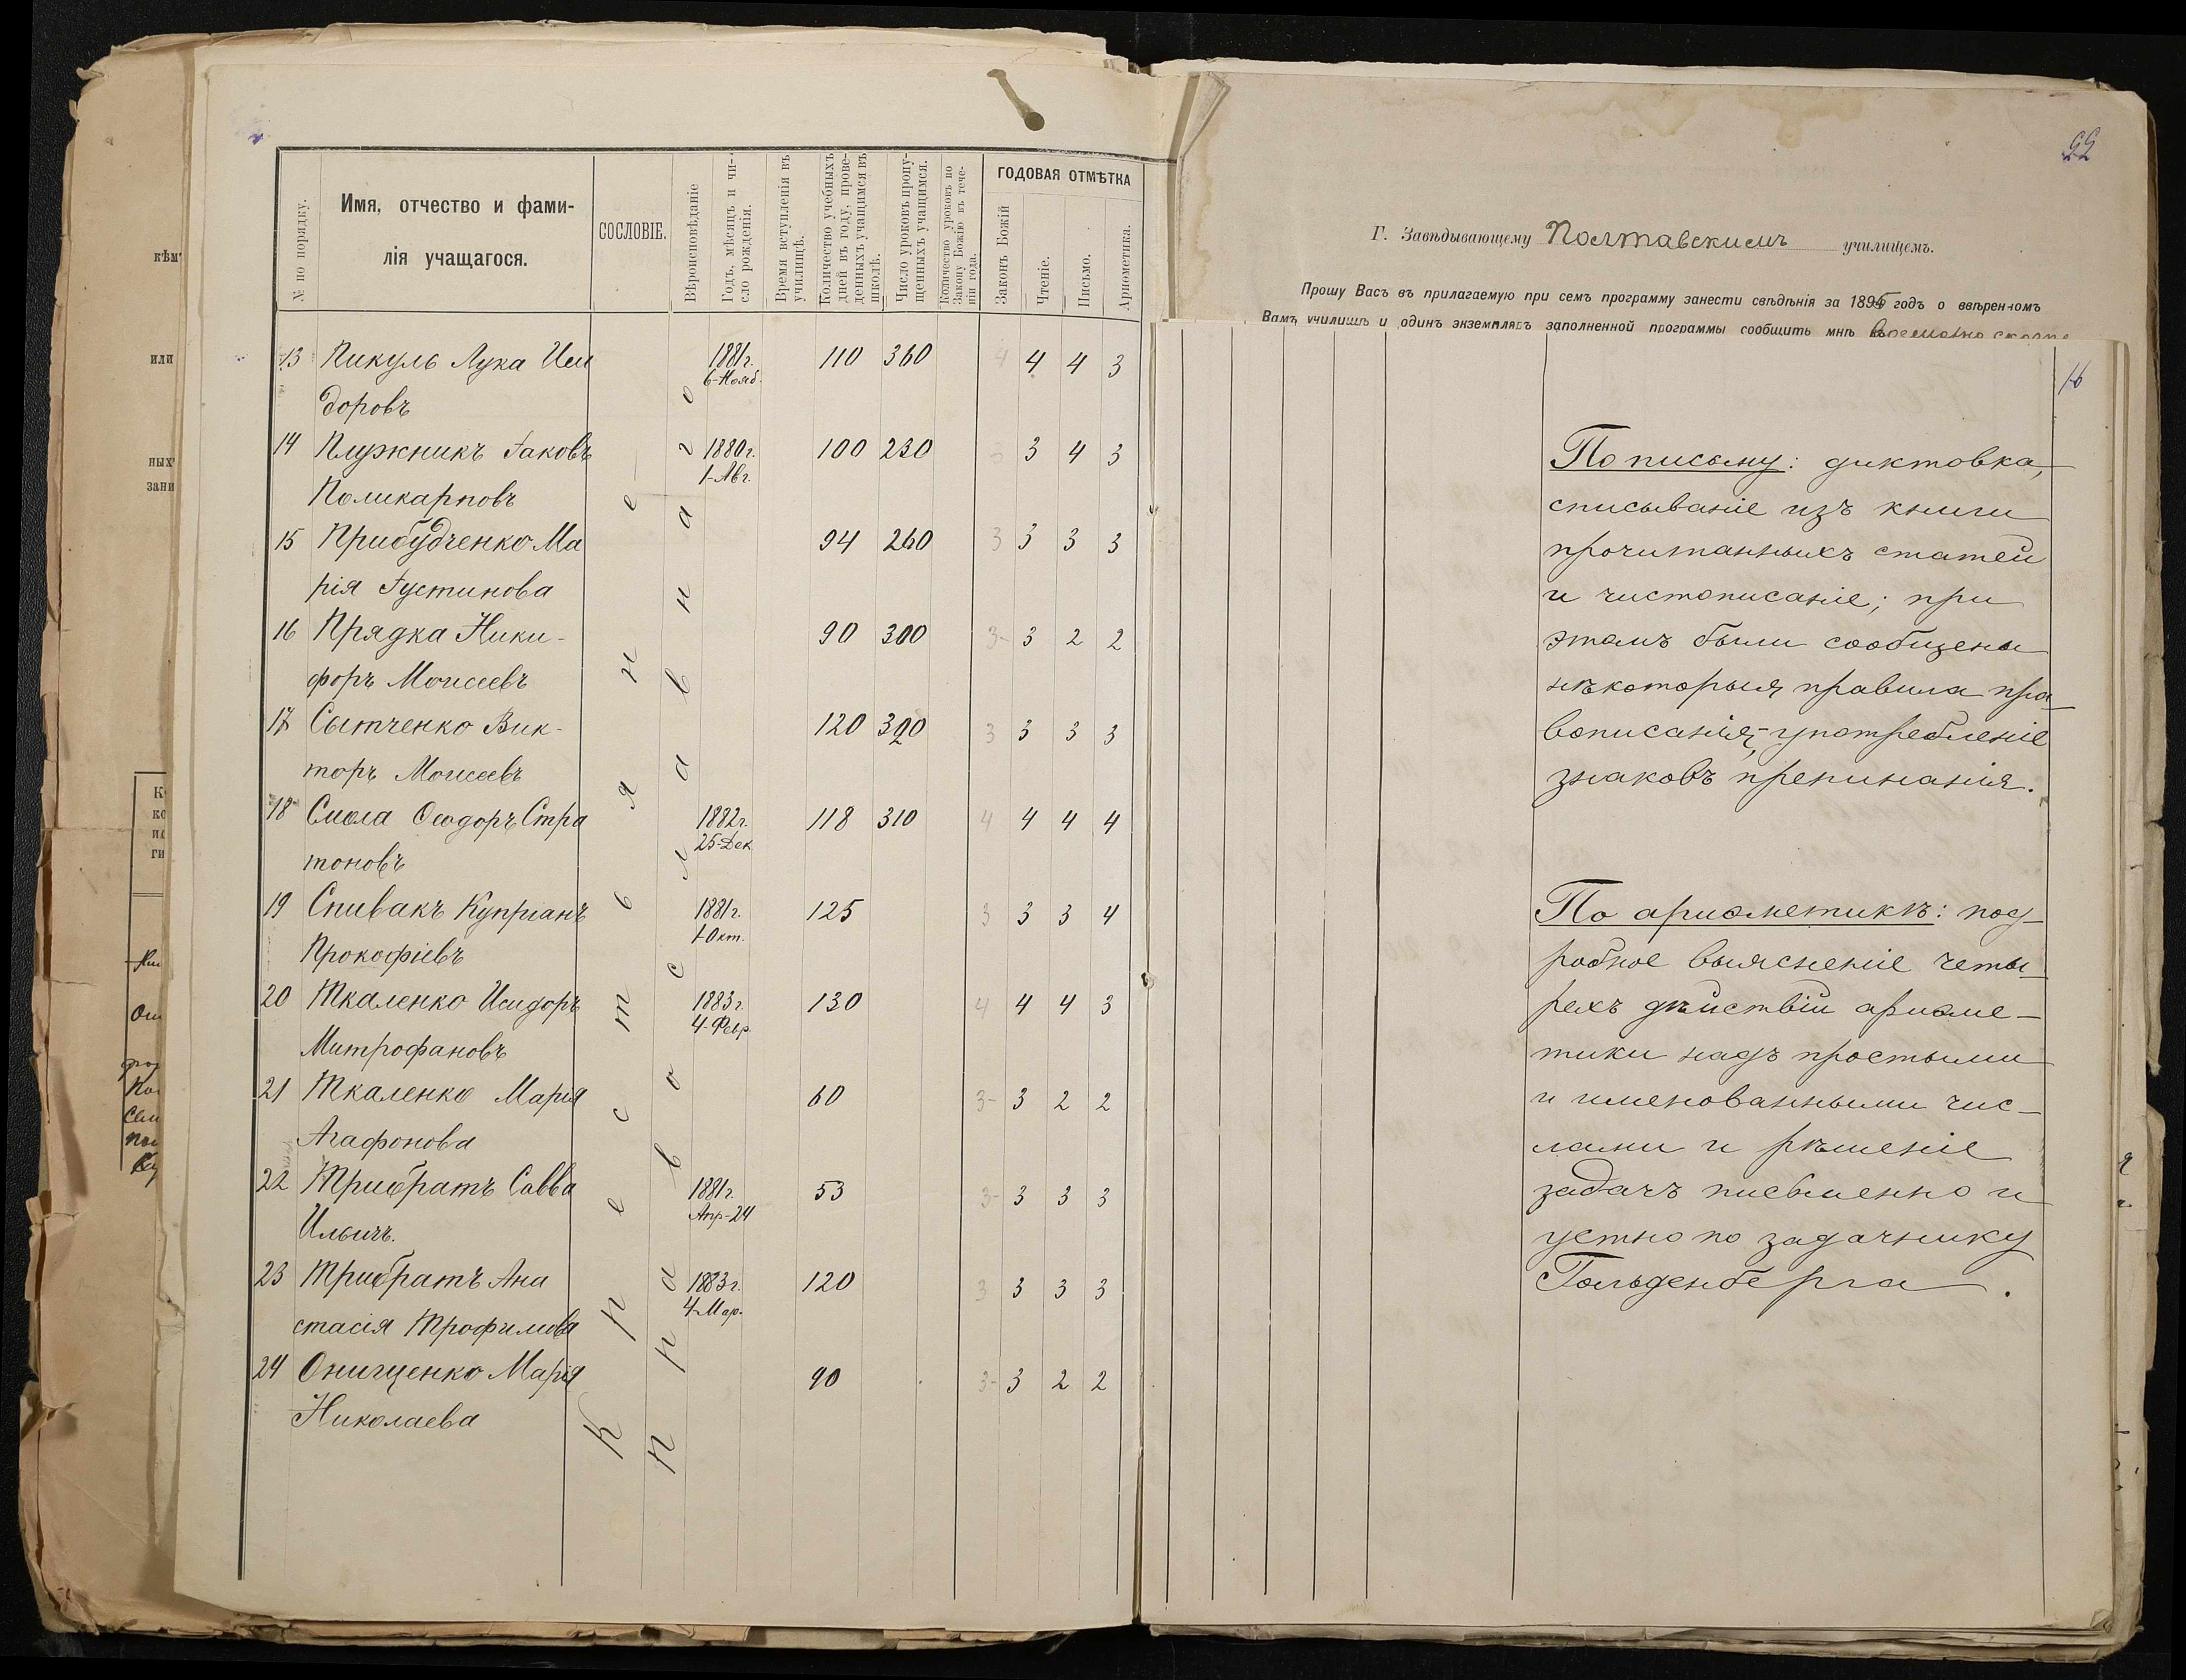 № по порядку.
Имя, отчество и фами-
лія учащагося.
СОСЛОВІЕ.
Вѣроисповѣданіе
Годъ, мѣсяцъ и чи-
сло рожденія.
Время вступленія въ
училищѣ.
Количество учебныхъ
дней въ году, прове-
денныхъ учащимся въ
школѣ.
Число уроковъ пропу-
щенныхъ учащимся.
Количество уроковъ по
Закону Божію въ тече-
ніи года.
ГОДОВАЯ ОТМѢТКА
Законъ Божій
Чтеніе.
Письмо.
Ариѳметика.
Крестьяне
Православнаго
13 Пикуль Лука Иси 1881г. 110 360 4 4 4 3
6-Нояб.
доровъ
14 Плужникъ Іаковъ 1880г. 100 230 3 3 4 3
1-Авг.
Поликарповъ
15 Прибудченко Ма 94 260 3 3 3 3
рія Іустинова
16 Прядка Ники- 90 300 3- 3 2 2
форъ Моисеевъ
17 Сытченко Вик- 120 300 3 3 3 3
торъ Моисеевъ
18 Ѳеодоръ Стра 1882г. 118 310 4 4 4 4
25-Дек
тоновъ
19 Спивакъ Куприанъ 1881г. 125 3 3 3 4
1-Окт.
Прокофіевъ
20 Ткаленко Исидоръ 1883г. 130 4 4 4 3
4-Февр.
Митрофановъ
21 Ткаленко Марія 60 3- 3 2 2
Агафонова
22 Трибратъ Савва 1881г. 53 3- 3 3 3
Апр-24
Ильичъ.
23 Трибратъ Ана 1883г. 120 3 3 3 3
4-Мар.
стасія Трофимова
24 Онищенко Марія 90 3- 3 2 2
Николаева
22
Г. Завѣдывающему Полтавскимъ училищемъ.
Прошу Васъ въ прилагаемую при семъ программу занести свѣдѣнія за 1895 годъ о ввѣренномъ
Вамъ училищѣ и одинъ экземпляръ заполненной программы сообщить мнѣ
16
По письму: диктовка,
списываніе изъ книги
прочитанныхъ статей
и чистописаніе; при
этомъ были сообщены
нѣкоторыя правила пра
вописанія, употребленіе
знаковъ препинанія.
По ариѳметикѣ: под-
робное выясненіе четы-
рехъ дѣйствій ариѳме-
тики надъ простыми
и именованными чис-
лами и рѣшеніе
задачъ письменно и
устно по задачнику
Гольденберга.